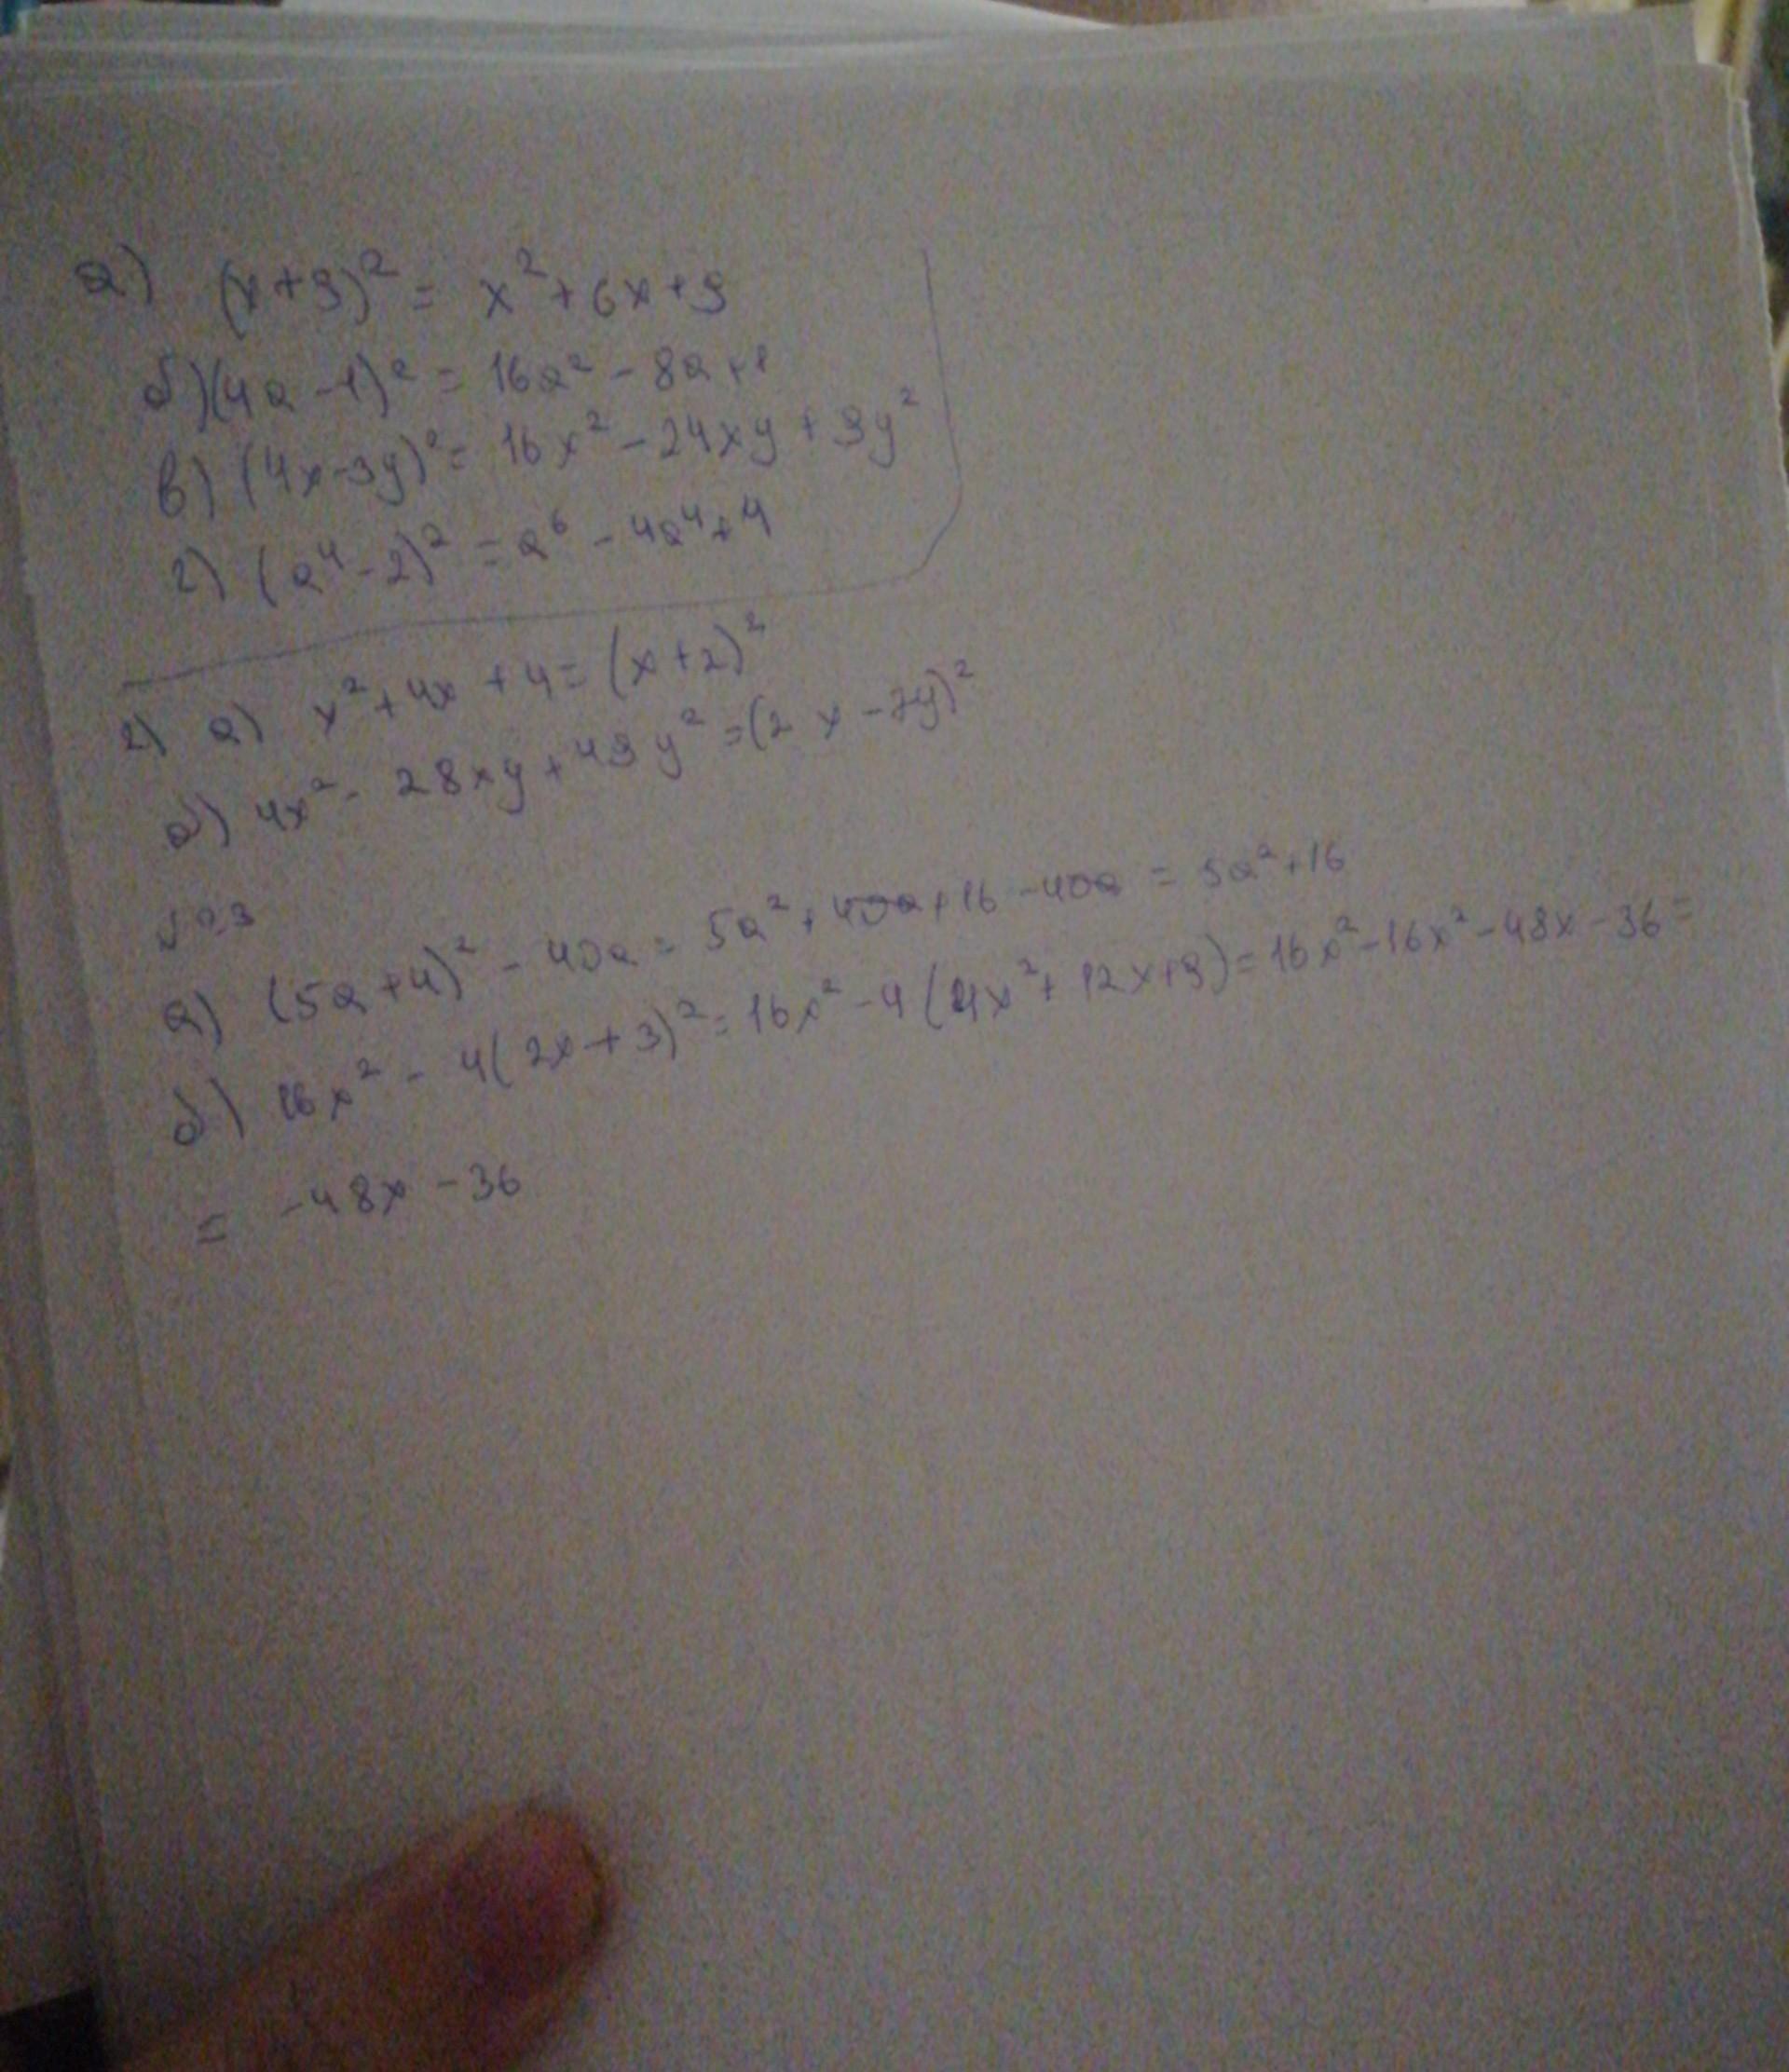 а) (x+3)² = x²+6x+9
б) (4a-1)² = 16a² - 8a+1
в) (4x-3y)² = 16x² - 24xy + 9y²
г) (a⁴-2)² = a⁶ - 4a⁴+4
2) а) x²+4x +4 = (x+2)²
б) 4x² - 28xy + 49y² = (2x - 7y)²
а) (5a+4)² - 40a = 5a²+40a+16 -40a = 5a²+16
б) 16x² - 4(2x+3)² = 16x² -4(4x²+12x+9) = 16x²-16x²-48x-36 =
= -48x -36